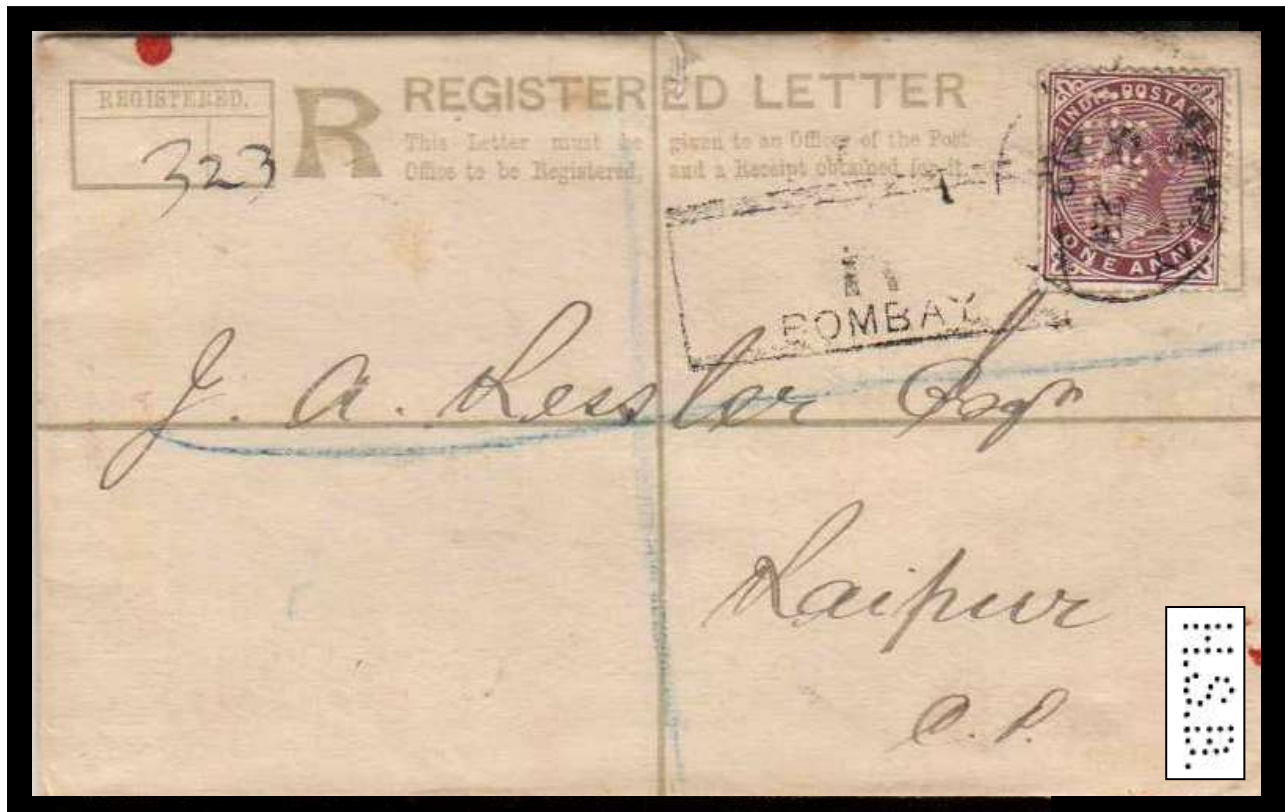 REGISTERED.
323
R
REGISTERED LETTER
This Letter must be given to an Officer of the Post
Office to be Registered, and a Receipt obtained for it.
INDIA POSTAGE
ONE ANNA
R
BOMBAY
J. A. Kessler Esqr
Raipur
C. P.
HSB.